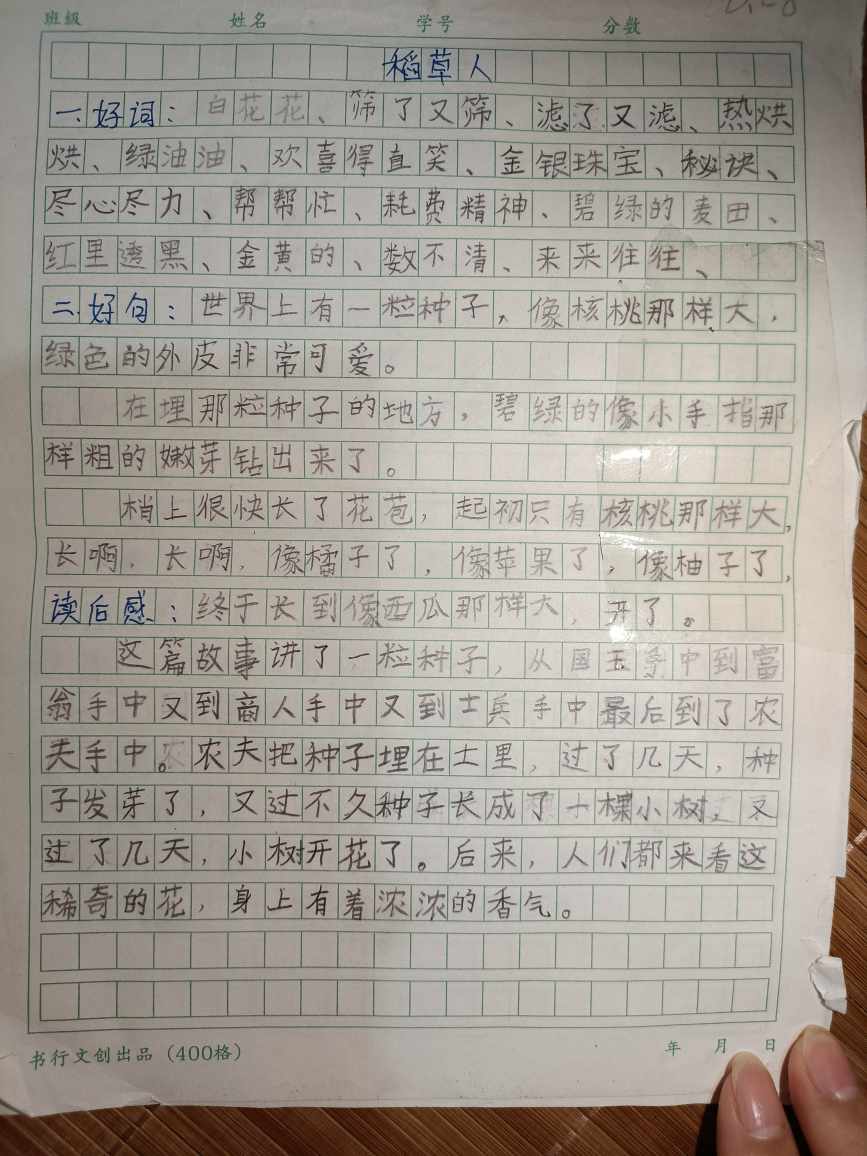 班级 姓名 学号 分数
稻草人
一、好词：白花花、筛了又筛、滤了又滤、热烘
烘、绿油油、欢喜得直笑、金银珠宝、秘诀、
尽心尽力、帮帮忙、耗费精神、碧绿的麦田、
红里透黑、金黄的、数不清、来来往往、
二、好句：世界上有一粒种子，像核桃那样大，
绿色的外皮非常可爱。
在埋那粒种子的地方，碧绿的像小手指那
样粗的嫩芽钻出来了。
梢上很快长了花苞，起初只有核桃那样大，
长啊，长啊，像橘子了，像苹果了，像柚子了，
读后感：终于长到像西瓜那样大，开了。
这篇故事讲了一粒种子，从国王手中到富
翁手中又到商人手中又到士兵手中最后到了农
夫手中。农夫把种子埋在土里，过了几天，种
子发芽了，又过不久种子长成了一棵小树，又
过了几天，小树开花了。后来，人们都来看这
稀奇的花，身上有着浓浓的香气。
书行文创出品（400格） 年 月 日